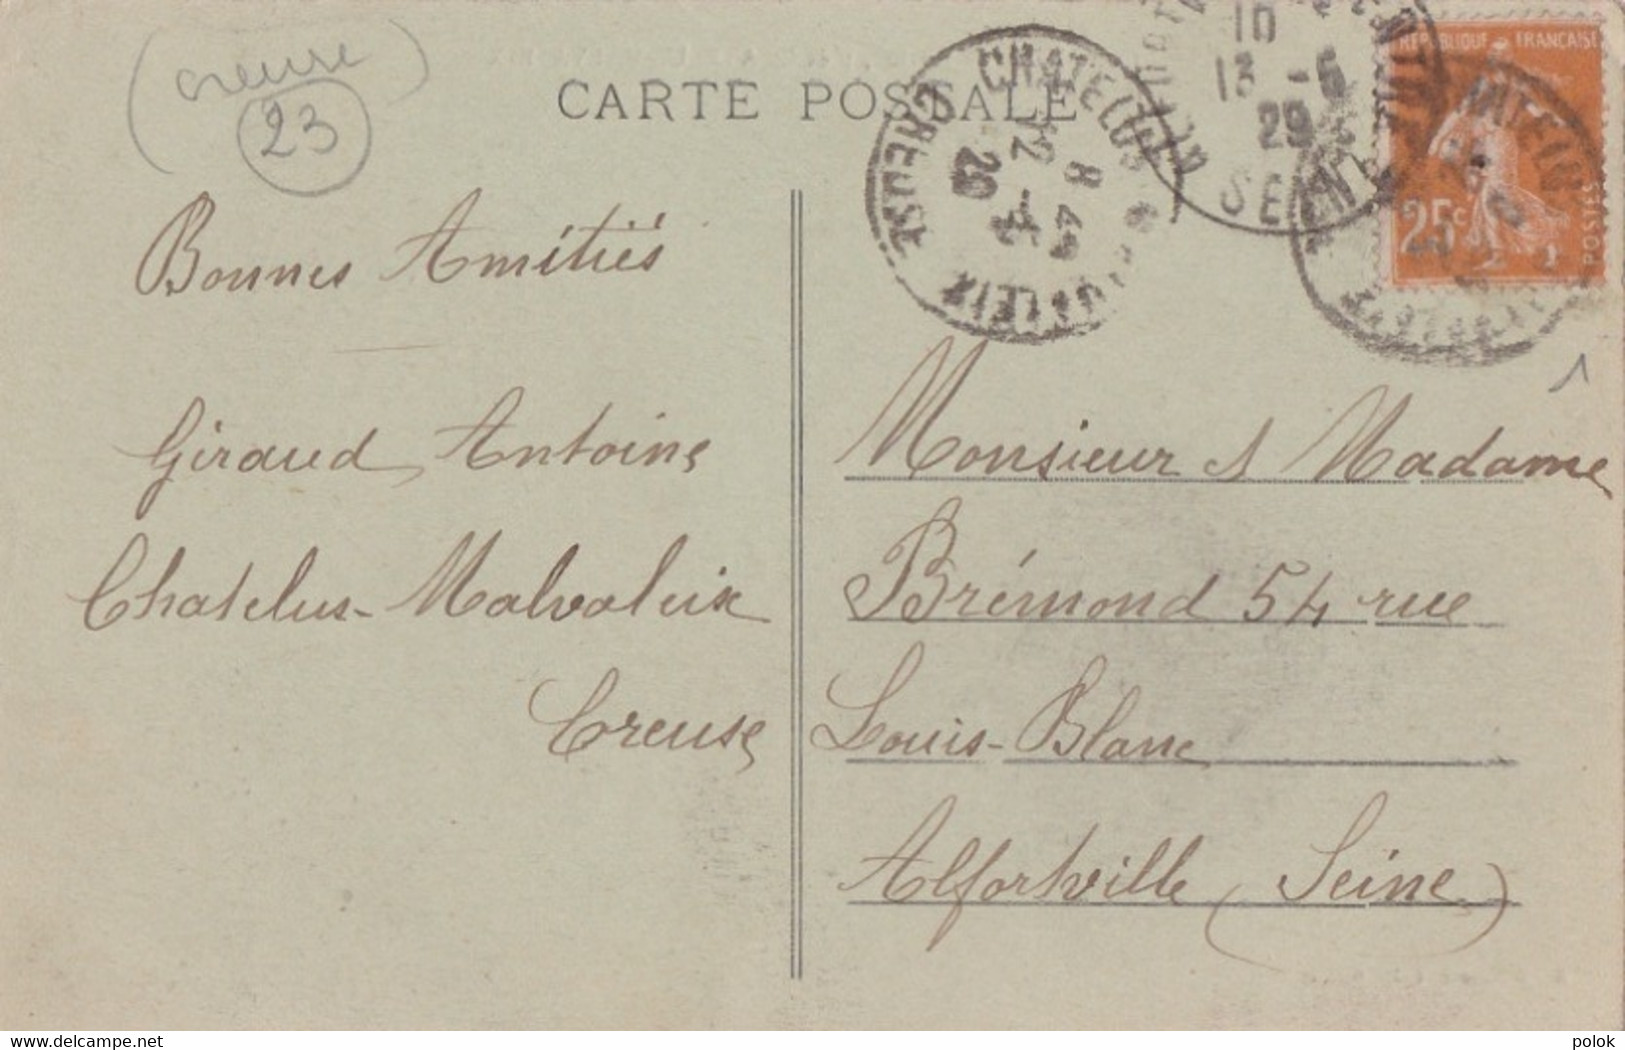 (creuse)
23
CARTE POSTALE
CHATELUS
CREUSE
8 45
12 -5
29
10
13 -5
29
SEINE
REPUBLIQUE FRANÇAISE
25c
POSTES
Bonnes Amitiés
Giraud Antoine
Chatelus-Malvaleix
Creuse
Monsieur et Madame
Brémond 54 rue
Louis-Blanc
Alfortville (Seine)
www.delcampe.net
polok